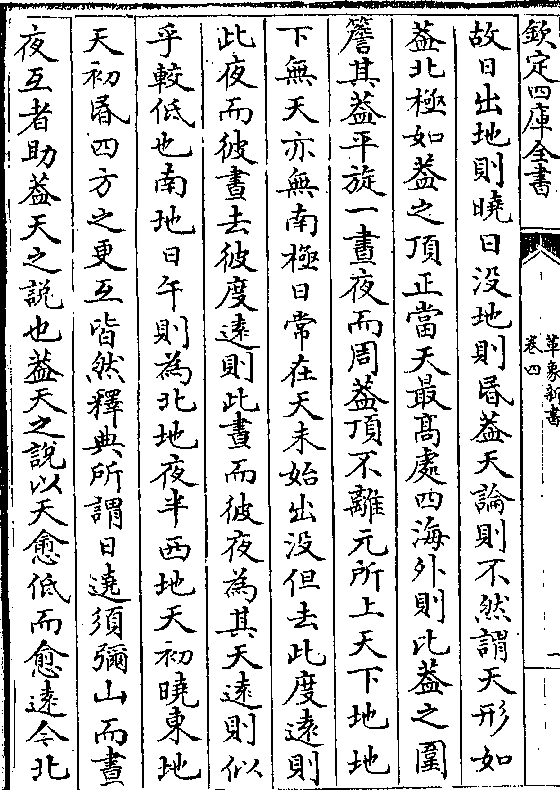 欽定四庫全書
革象新書
卷四
故日出地則曉日没地則昬葢天論則不然謂天形如
葢北極如葢之頂正當天最髙處四海外則比葢之圍
簷其葢平旋一晝夜而周葢頂不離元所上天下地地
下無天亦無南極日常在天未始出没但去此度逺則
此夜而彼晝去彼度逺則此晝而彼夜為其天逺則似
乎較低也南地日午則為北地夜半西地天初曉東地
天初昬四方之更互皆然釋典所謂日遶須彌山而晝
夜互者助葢天之説也葢天之説以天愈低而愈逺今北